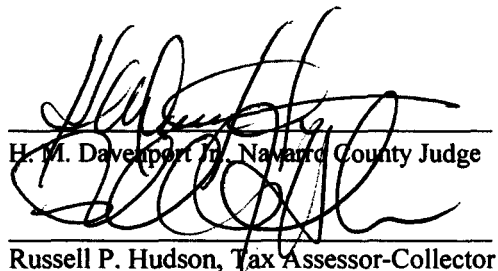 H. M. Davenport Jr., Navarro County Judge
Russell P. Hudson, Tax Assessor-Collector